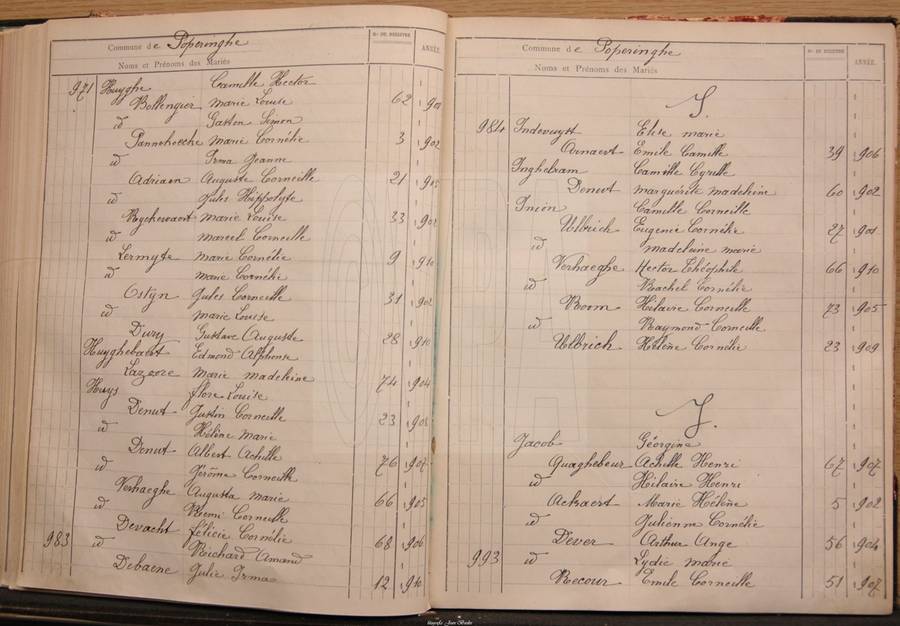 Commune de Poperinghe
Nos DU REGISTRE
ANNÉE.
Noms et Prénoms des Mariés
971 Huyghe Camille Hector
Bollengier Marie Louise 62 1901
id Gaston Simon
Pannehoecke Marie Cornélie 3 1902
id Irma Jeanne
Adriaen Auguste Corneille 21 1905
id Jules Hippolyte
Ryckewaert Marie Louise 33 1901
id Marcel Corneille
Lermyte Marie Cornélie 9 1910
id Marie Cornélie
Ostyn Jules Corneille 31 1902
id Marie Louise
Dury Gustave Auguste 28 1910
Huyghebaert Edmond Alphonse
Lazoore Marie Madeleine 74 1904
Huys Flore Louise
Denut Justin Corneille 23 1901
id Hélène Marie
Denut Albert Achille 76 1907
id Jérôme Corneille
Verhaeghe Augusta Marie 66 1905
id Remi Corneille
Devacht Félicie Cornélie 68 1906
983 id Richard Amand
Debaene Julie Irma 12 1910
Commune de Poperinghe
Nos DU REGISTRE
ANNÉE.
Noms et Prénoms des Mariés
I.
984 Indevuyst Elise Marie
Arnaert Emile Camille 39 1906
Inghelram Camille Cyrille
Denut Marguérite Madeleine 60 1902
Imien Camille Corneille
Ulbrich Eugenie Cornélie 27 1901
id Madeleine Marie
Verhaeghe Hector Théophile 66 1910
id Rachel Cornélie
Room Hilaire Corneille 73 1905
id Raymond Corneille
Ulbrich Hélène Cornélie 23 1909
J.
Jacob Géorgine
Quaghebeur Achille Henri 67 1907
id Hilaire Henri
Ackaert Marie Hélène 5 1902
id Julienne Cornélie
Dever Arthur Ange 56 1904
993 id Lydie Marie
Recour Emile Corneille 51 1907